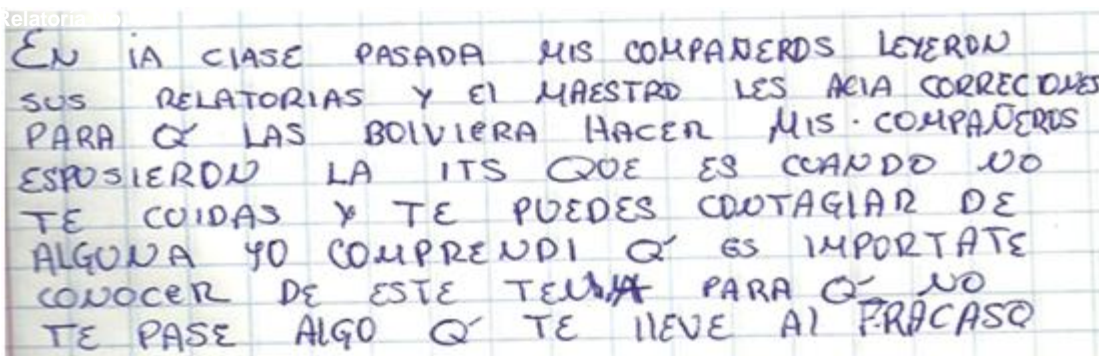 Relatoria
EN lA ClASE PASADA MIS COMPAÑEROS LEYERON
SUS RELATORIAS Y El MAESTRO LES ACIA CORRECIONES
PARA Q' LAS BOlVIERA HACER MIS. COMPAÑEROS
ESPUSIERON LA ITS QUE ES CUANDO NO
TE CUIDAS Y TE PUEDES CONTAGIAR DE
ALGUNA YO COMPRENDI Q' ES IMPORTATE
CONOCER DE ESTE TEMA PARA Q' NO
TE PASE AlGO Q' TE llEVE Al FRACASO